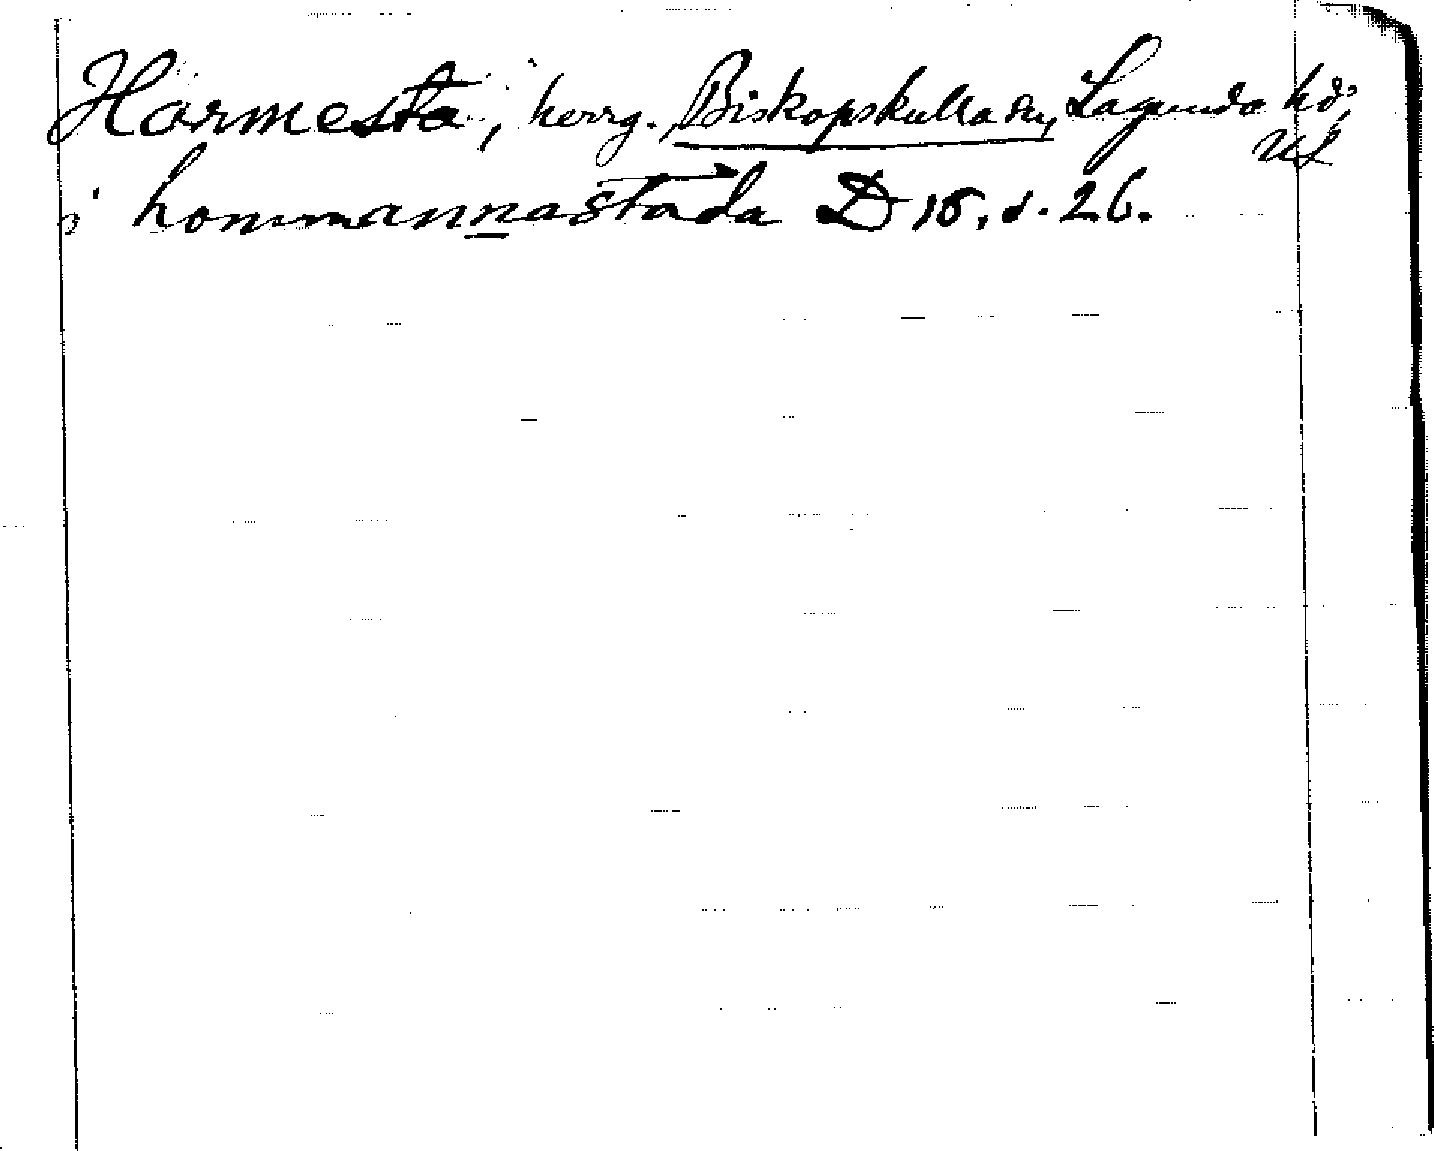 Harmesta, herrg. Biskopskulla sn, Lagunda hd,
Upl
i hommannastada D 18, s. 26.